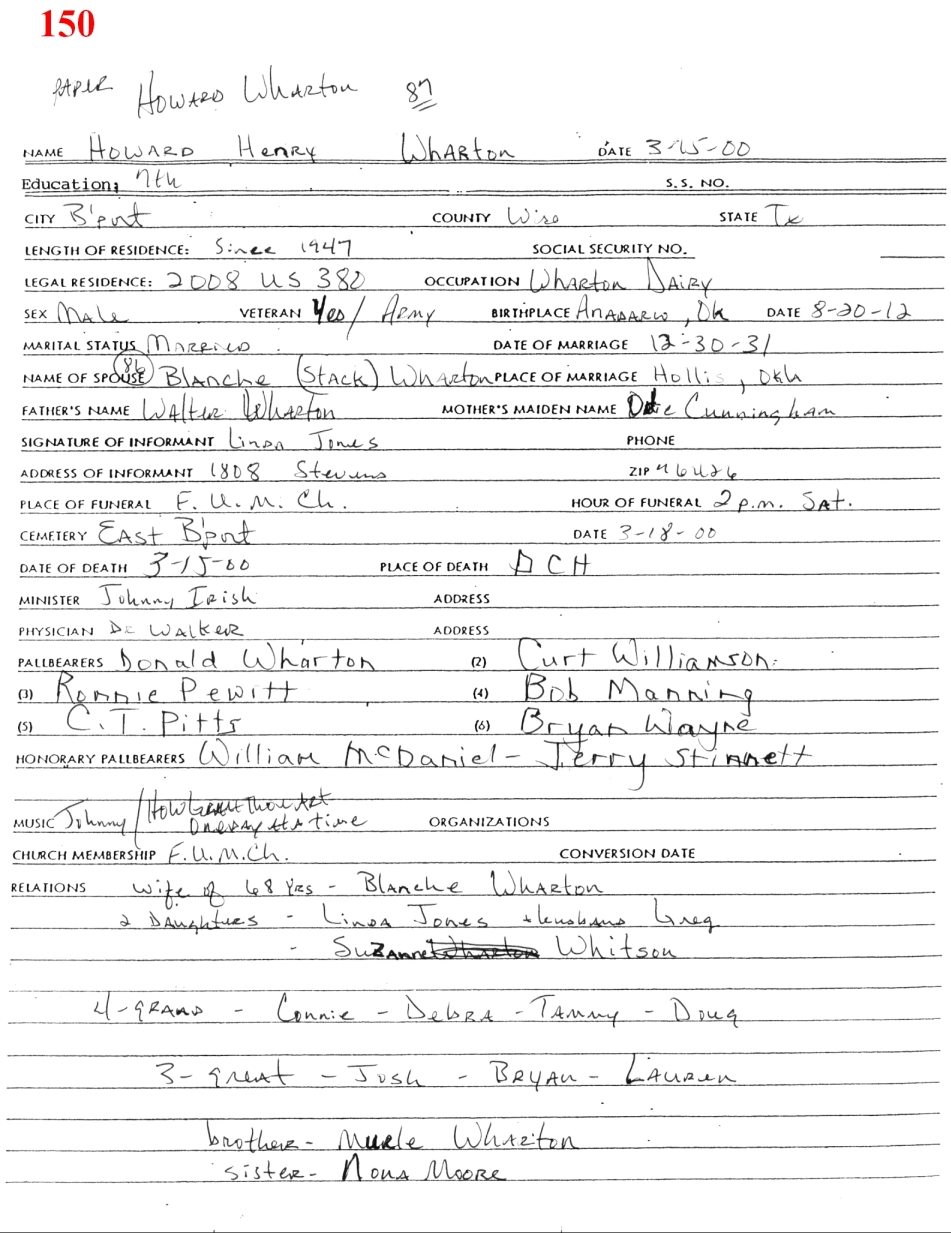 150
PAPER Howard Wharton 87
NAME Howard Henry Wharton DATE 3-15-00
Education: 7th S.S. NO.
CITY B'port COUNTY Wise STATE Tx
LENGTH OF RESIDENCE: Since 1947 SOCIAL SECURITY NO.
LEGAL RESIDENCE: 2008 US 380 OCCUPATION Wharton Dairy
SEX Male VETERAN Yes/ Army BIRTHPLACE Anadarko, Ok DATE 8-20-12
MARITAL STATUS Married DATE OF MARRIAGE 12-30-31
86
NAME OF SPOUSE Blanche (Stack) Wharton PLACE OF MARRIAGE Hollis, Okla
FATHER'S NAME Walter Wharton MOTHER'S MAIDEN NAME Cunningham
SIGNATURE OF INFORMANT Linda Jones PHONE
ADDRESS OF INFORMANT 1808 Stevens ZIP 76426
PLACE OF FUNERAL F. U. M. Ch. HOUR OF FUNERAL 2 p.m. Sat.
CEMETERY East B'port DATE 3-18-00
DATE OF DEATH 3-15-00 PLACE OF DEATH D C H
MINISTER Johnny Irish ADDRESS
PHYSICIAN Dr Walker ADDRESS
PALLBEARERS Donald Wharton (2) Curt Williamson
(3) Ronnie Pewitt (4) Bob Manning
(5) C. T. Pitts (6) Bryan Wayne
HONORARY PALLBEARERS William McDaniel - Jerry Stinnett
How Great Thou Art
MUSIC Johnny / One day at a time ORGANIZATIONS
CHURCH MEMBERSHIP F.U.M.Ch. CONVERSION DATE
RELATIONS wife of 68 yrs - Blanche Wharton
2 Daughters - Linda Jones + husband Greg
- Suzanne Wharton Whitson
4-grand - Connie - Debra - Tammy - Doug
3-great - Josh - Bryan - Lauren
brother - Murle Wharton
sister - Nona Moore